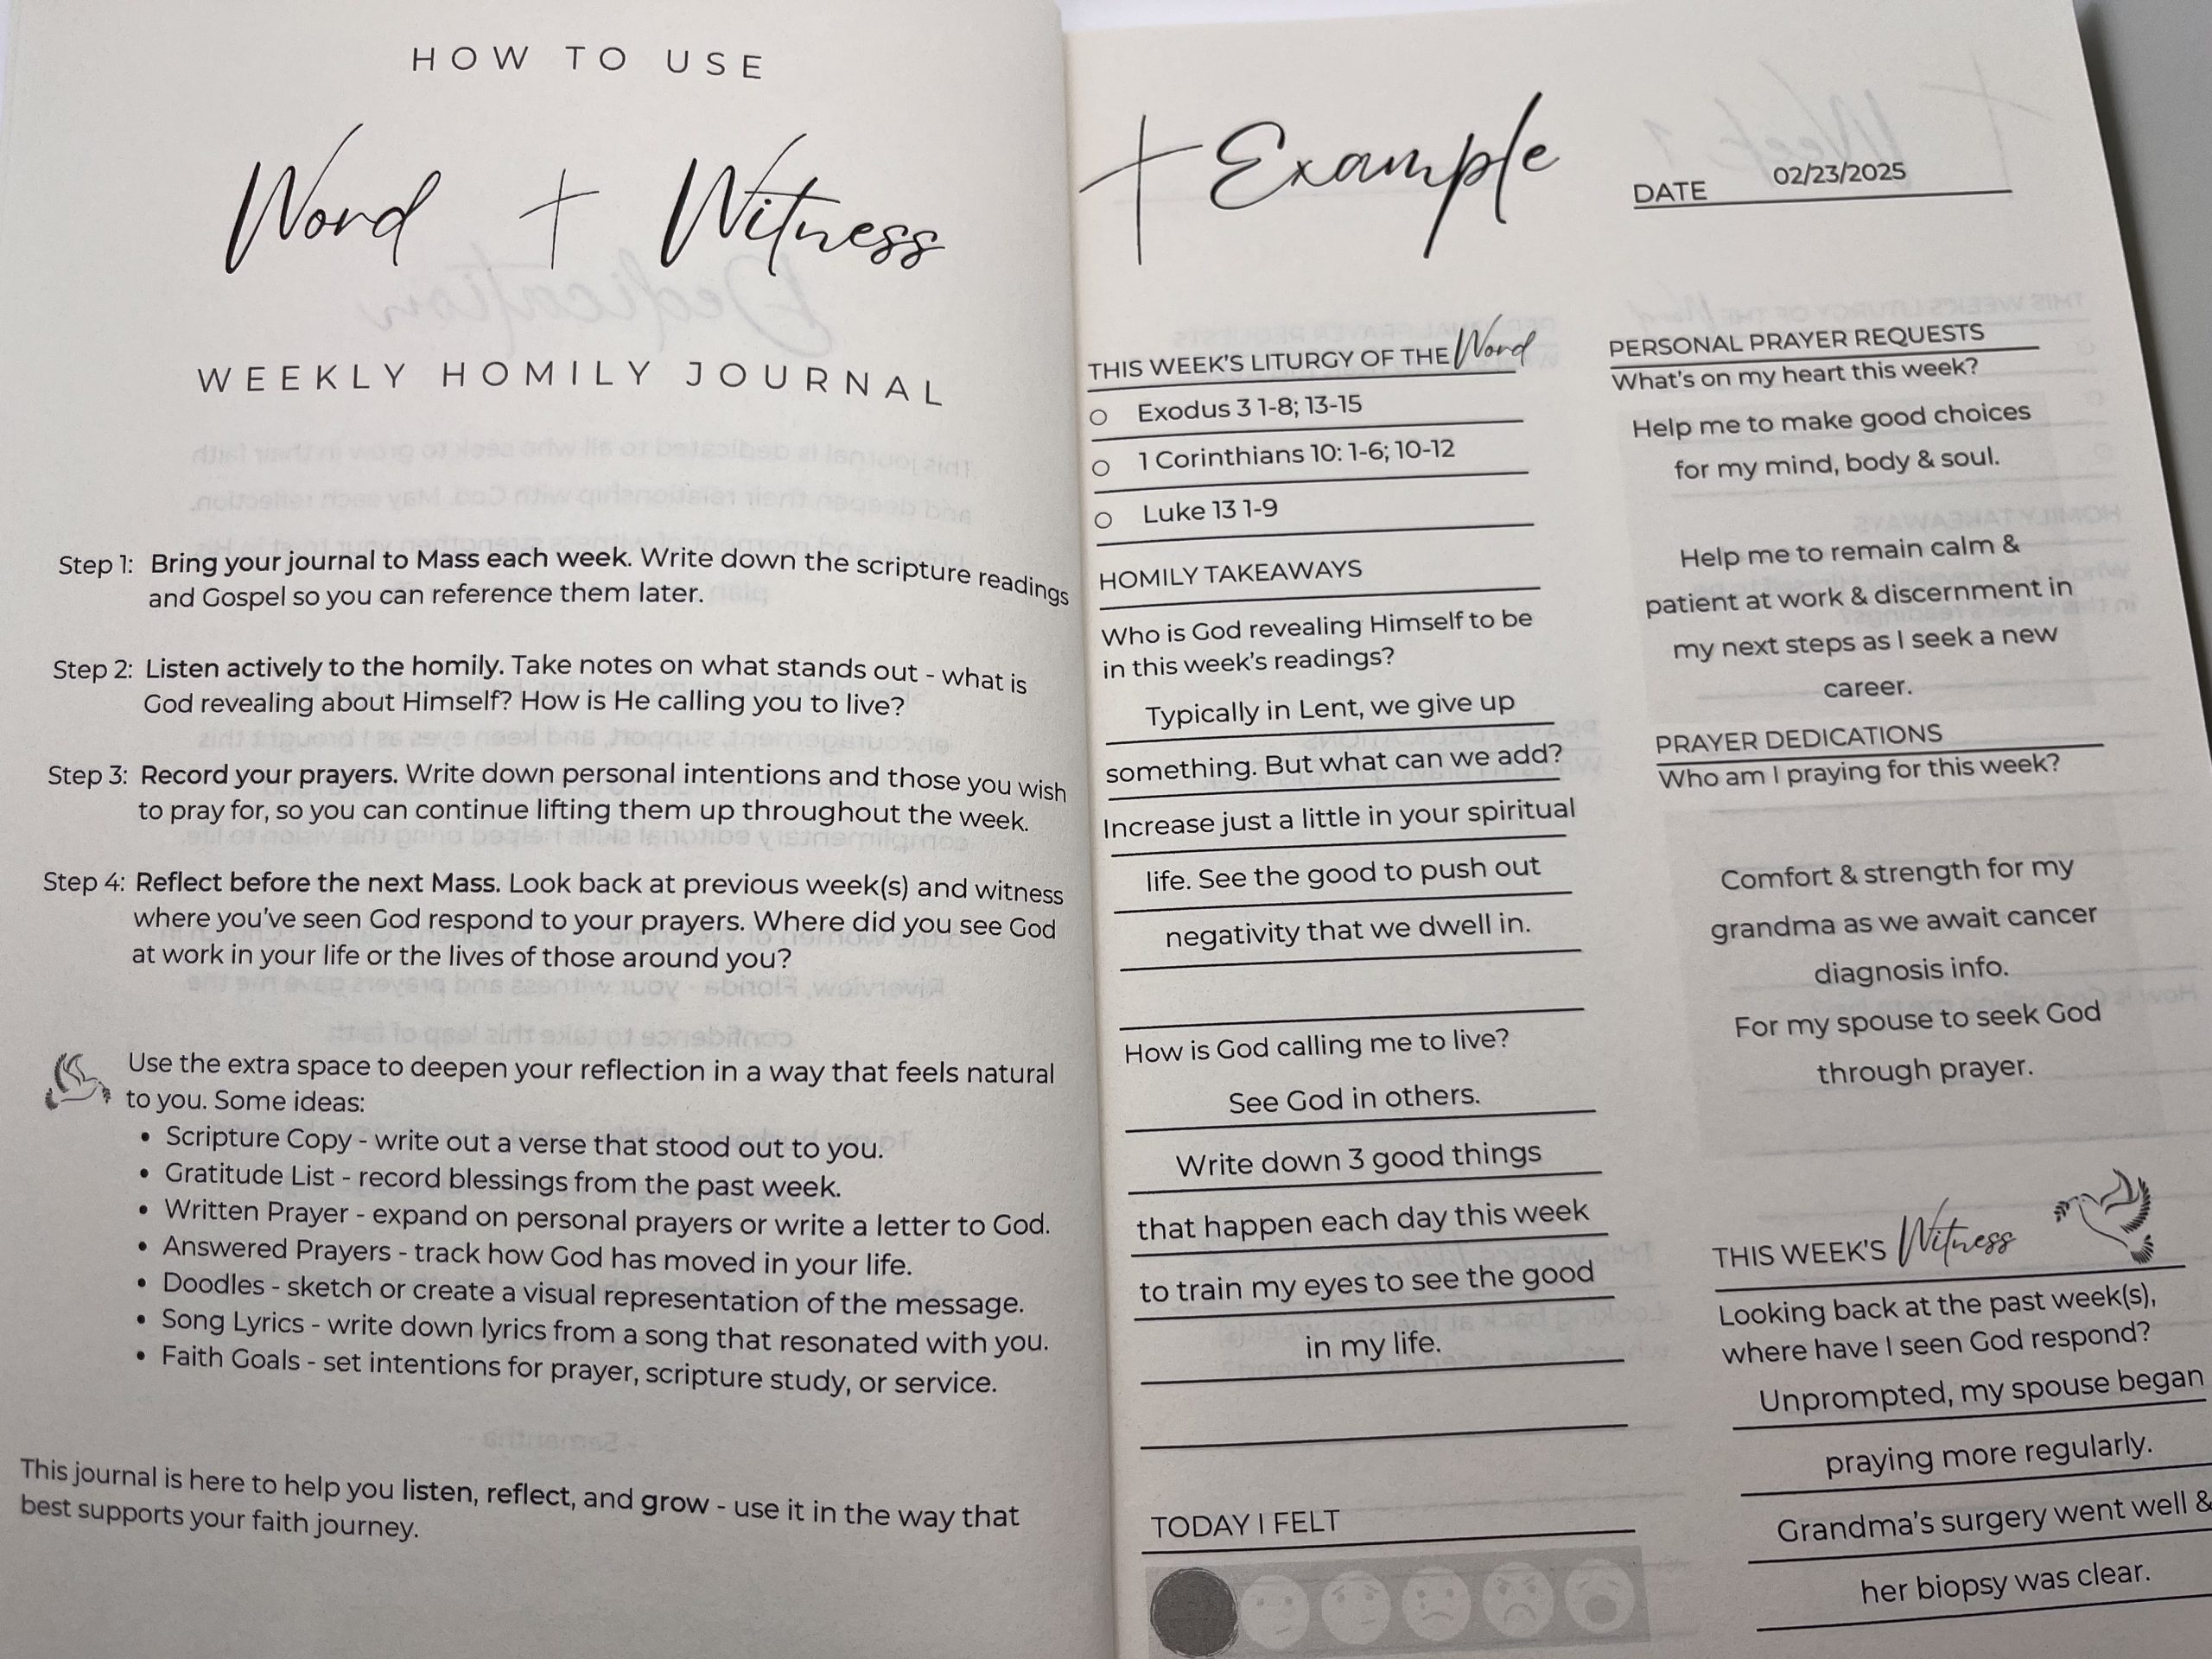 HOW TO USE
Word + Witness
WEEKLY HOMILY JOURNAL
Step 1: Bring your journal to Mass each week. Write down the scripture readings
and Gospel so you can reference them later.
Step 2: Listen actively to the homily. Take notes on what stands out - what is
God revealing about Himself? How is He calling you to live?
Step 3: Record your prayers. Write down personal intentions and those you wish
to pray for, so you can continue lifting them up throughout the week.
Step 4: Reflect before the next Mass. Look back at previous week(s) and witness
where you've seen God respond to your prayers. Where did you see God
at work in your life or the lives of those around you?
Use the extra space to deepen your reflection in a way that feels natural
to you. Some ideas:
• Scripture Copy - write out a verse that stood out to you.
• Gratitude List - record blessings from the past week.
• Written Prayer - expand on personal prayers or write a letter to God.
• Answered Prayers - track how God has moved in your life.
• Doodles - sketch or create a visual representation of the message.
• Song Lyrics - write down lyrics from a song that resonated with you.
• Faith Goals - set intentions for prayer, scripture study, or service.
This journal is here to help you listen, reflect, and grow - use it in the way that
best supports your faith journey.
Example
DATE 02/23/2025
THIS WEEK'S LITURGY OF THE Word
Exodus 3 1-8; 13-15
1 Corinthians 10: 1-6; 10-12
Luke 13 1-9
HOMILY TAKEAWAYS
Who is God revealing Himself to be
in this week's readings?
Typically in Lent, we give up
something. But what can we add?
Increase just a little in your spiritual
life. See the good to push out
negativity that we dwell in.
How is God calling me to live?
See God in others.
Write down 3 good things
that happen each day this week
to train my eyes to see the good
in my life.
TODAY I FELT
PERSONAL PRAYER REQUESTS
What's on my heart this week?
Help me to make good choices
for my mind, body & soul.
Help me to remain calm &
patient at work & discernment in
my next steps as I seek a new
career.
PRAYER DEDICATIONS
Who am I praying for this week?
Comfort & strength for my
grandma as we await cancer
diagnosis info.
For my spouse to seek God
through prayer.
THIS WEEK'S Witness
Looking back at the past week(s),
where have I seen God respond?
Unprompted, my spouse began
praying more regularly.
Grandma's surgery went well &
her biopsy was clear.